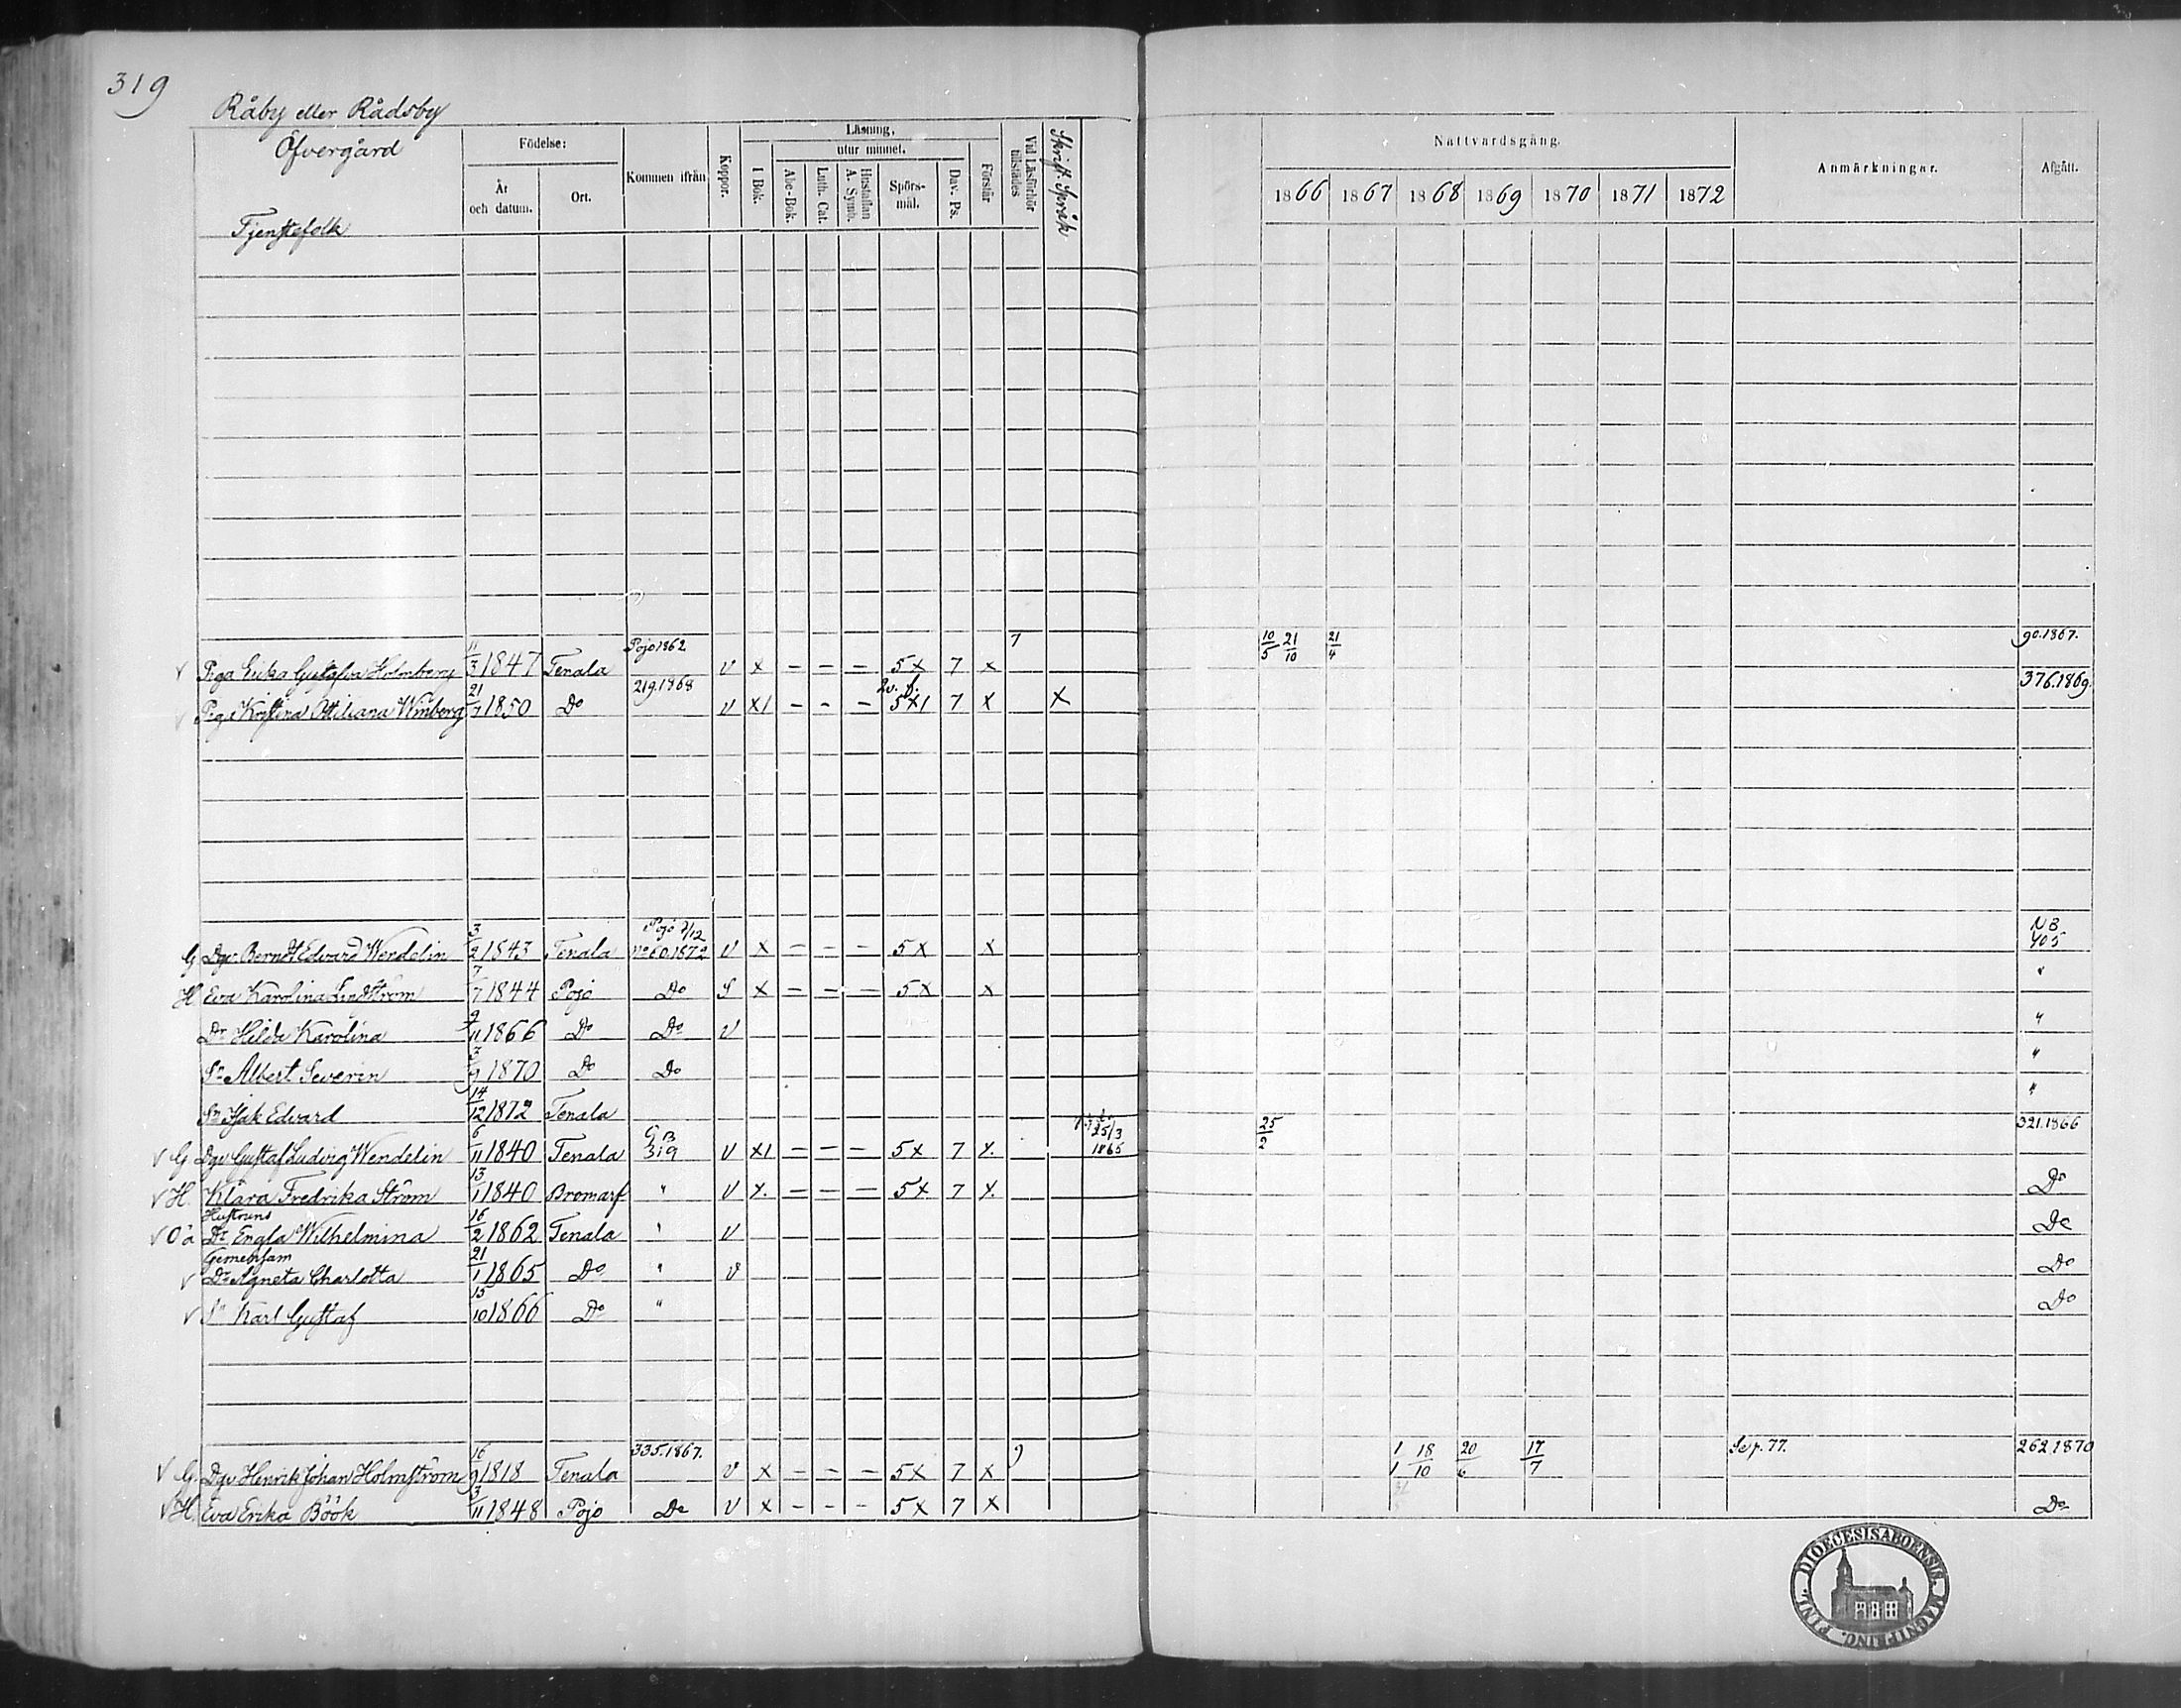 319
Råby eller Rådsby
Öfvergård
Tjenstefolk
Födelse:
År och datum.
Ort.
Kommen ifrån
Koppor.
Läsning,
utur minnet.
I Bok.
Abc-Bok.
Luth. Cat.
Hustaflan A. Symb.
Spörs-mål.
Dav. Ps.
Förstår
Vid Läsförhör tillstädes
Skrift. Språk
Nattvardsgång.
1866 1867 1868 1869 1870 1871 1872
Anmärkningar.
Afgått.
v Piga Erika Gustafva Holmberg 11/3 1847 Tenala Pojo 1862 v x – – – 5x 7 x 7 10/5 21/10 21/4 90.1867.
v Piga Kristina Ottiliana Winberg 21/7 1850 Do 219.1868 v x1 – – – 5x1 7 x x 376.1869.
G Dgv Berndt Edvard Wendelin 3/2 1843 Tenala Pojo 7/12 No 60.1872 v x – – – 5x x NB 405
H Eva Karolina Lindström 7/7 1844 Pojo Do S x – – – 5x x "
Dr Hilda Karolina 9/11 1866 Do Do v "
Sn Albert Severin 3/9 1870 Do Do "
Sn Isak Edvard 14/12 1872 Tenala "
v G Dgv Gustaf Ludvig Wendelin 6/11 1840 Tenala GB 319 v x1 – – – 5x 7 x 25/3 1865 25/2 321.1866
v H. Klara Fredrika Ström 13/1 1840 Bromarf " v x – – – 5x 7 x Do
Hustruns
v Oä Dr Engla Wilhelmina 16/2 1862 Tenala " v Do
Gemensam
v Dr Agneta Charlotta 21/1 1865 Do " v Do
v Sn Karl Gustaf 15/10 1866 Do " Do
v G. Dgv Henrik Johan Holmström 16/9 1818 Tenala 335.1867. v x – – – 5x 7 x 9 1/1 18/10 20/6 17/7 Se p. 77. 262.1870
v H. Eva Erika Böök 3/11 1848 Pojo Do v x – – – 5x 7 x Do
DIOECESIS ABOENSIS. MAGNI PRINC. FINL.